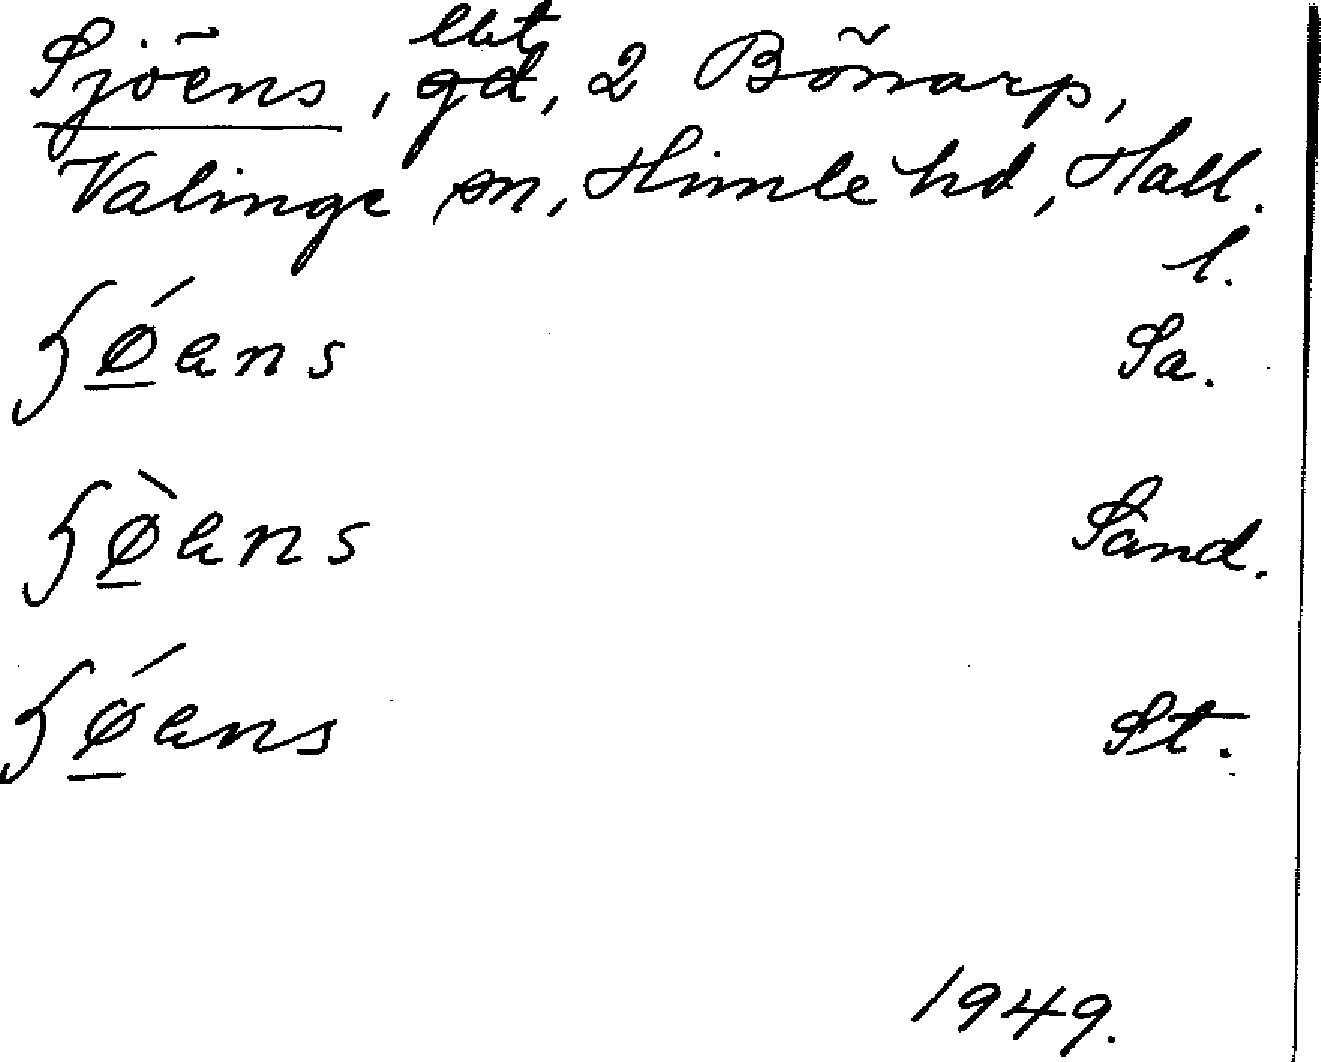 Sjöens, ~~gd~~ lht, 2 Bönarp,
Valinge sn, Himle hd, Hall.
l.
ɧǿ̲ens Sa.
ɧø̲̀ens Sand.
ɧǿ̲ens St.
1949.